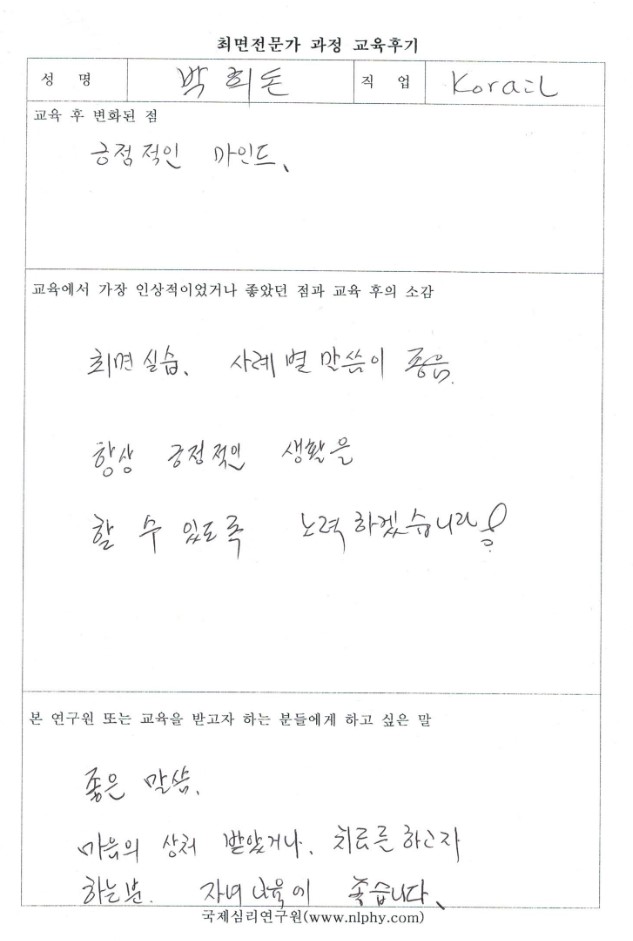 최면전문가 과정 교육후기
성 명 박희돈 직 업 Korail
교육 후 변화된 점
긍정적인 마인드、
교육에서 가장 인상적이었거나 좋았던 점과 교육 후의 소감
최면실습、 사례별 말씀이 좋음.
항상 긍정적인 생활을
할 수 있도록 노력하겠습니다!
본 연구원 또는 교육을 받고자 하는 분들에게 하고 싶은 말
좋은 말씀.
마음의 상처 받았거나. 치료를 하고자
하는분. 자녀 이 좋습니다、
국제심리연구원(www.nlphy.com)